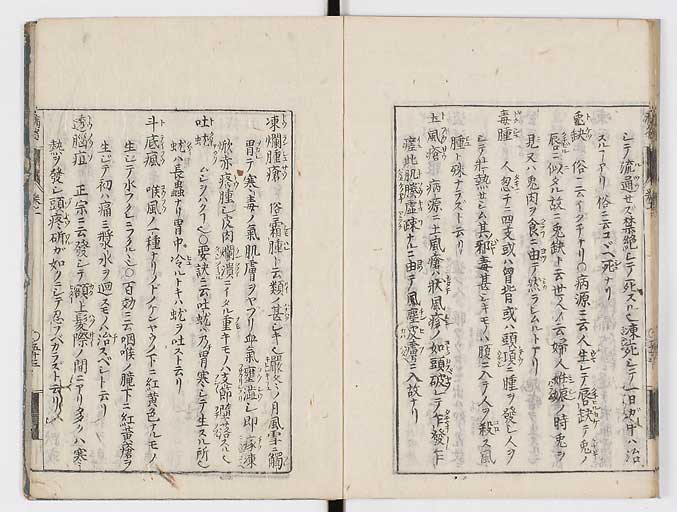 シテ流通セズ禁絶シテ死スル也凍死シテ一日ノ中ハ治
スルコアリ俗ニ云コヾヘ死ナリ
兎缺 俗ニ云イグチナリ〇病源ニ云人生レテ唇缺テ兎ノ
唇ニ似タル故ニ兎缺ト云世人ノ云婦人姙娠ノ時兎ヲ
見又ハ兎肉ヲ食ニ由テ然ラシムルトナリ
毒腫 人忽チニ四支或ハ胷背或ハ頭項ニ腫ヲ發シ人ヲ
シテ壮熱セシム其邪毒甚シキモノハ腹ニ入テ人ヲ殺ス風
腫ト殊ナラズト云リ
土風瘡 病源ニ土風瘡ハ状風疹ノ如頭破レテ乍發乍
瘥此肌腠虚疎ナルニ由テ風塵皮膚ニ入故ナリ
凍爛腫瘡 俗霜腫ト云類ノ甚シキ也嚴冬ノ月風雪ニ觸
冐テ寒毒ノ氣肌膚ヲヤブリ血氣壅澁シ即瘃凍
焮赤疼腫シ皮肉爛潰ニイタル重キモノハ支節墮落スル也
吐蚘 ムシヲハク也〇要訣ニ云吐蚘ハ乃胃寒シテ生スル所也
蚘ハ長蟲ナリ胃中冷ルトキハ蚘ヲ吐スト云リ
斗底風 喉風ノ一種ナリノドノケシヤウノ下ニ紅黄色ナルモノ
生シテ水フクレニフクルヽ也〇百効ニ云咽喉ノ腫下ニ紅黄瘡ヲ
生シテ初ハ痛ミ漿水ヲ過スモノハ治スベシト云リ
透腦疽 正宗ニ云發シテ額上髮際ノ間ニアリ多クハ寒ミ
熱ヲ發シ頭疼斫カ如クニシテ忍フヘカラズト云リ